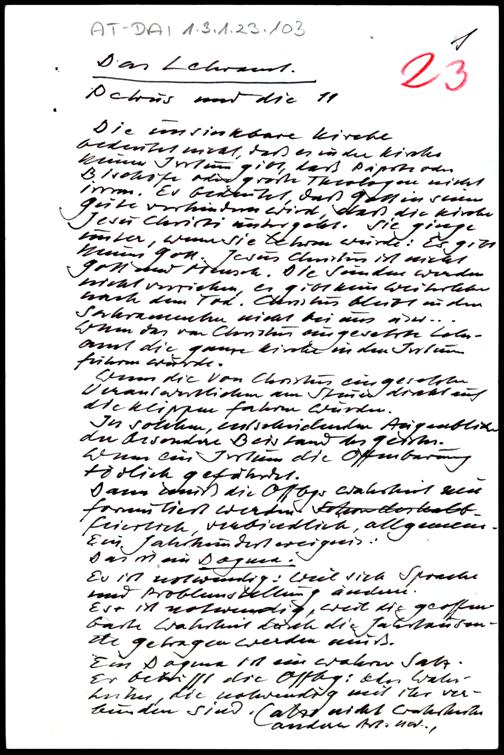 AT-DAI 1.3.1.23.103
1
23
Das Lehramt.
Petrus und die 11
Die unsinkbare Kirche
bedeutet nicht, daß es in der Kirche
keinen Irrtum gibt, daß Päpste oder
Bischöfe oder große Theologen nicht
irren. Es bedeutet, daß Gott in seiner
Güte verhindern wird, daß die Kirche
Jesu Christi untergeht. Sie ginge
unter, wenn sie lehren würde: Es gibt
keinen Gott. Jesus Christus ist nicht
Gott und Mensch. Die Sünden werden
nicht verziehen, es gibt kein Weiterleben
nach dem Tod. Christus bleibt in den
Sakramenten nicht bei uns usw...
Wenn das von Christus eingesetzte Lehr-
amt die ganze Kirche in den Irrtum
führen würde.
Wenn die von Christus eingesetzten
Verantwortlichen am Steuer direkt auf
die Klippen fahren würden.
In solchen, entscheidenden Augenblicken
der besondere Beistand des Geistes.
Wenn ein Irrtum die Offenbarung
tödlich gefährdet.
Dann muß die Offbgs Wahrheit neu
formuliert werden
feierlich, verbindlich, allgemein.
Ein Jahrhundertereignis:
Das ist ein Dogma.
Es ist notwendig: weil sich Sprache
und Problemstellung ändern.
Es ist notwendig, weil die geoffen-
barte Wahrheit durch die Jahrtausen-
de getragen werden muß.
Ein Dogma ist ein wahrer Satz.
Er betrifft die Offbg: oder Wahr-
heiten, die notwendig mit ihr ver-
bunden sind. (also nicht Wahrheiten
anderer Art